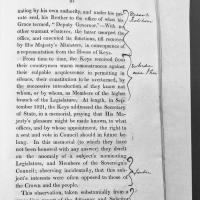 nating by his own authority, and under his pri-
vate seal, his Brother to the office of what his
Grace termed, "Deputy Governor."—With no
other warrant whatever, the latter usurped the
office, and executed its functions, till removed
by His Majesty's Ministers, in consequence of
a representation from the House of Keys.
From time to time, the Keys received from
their countrymen warm remonstrances against
their culpable acquiescence in permitting in
silence, their constitution to be overturned, by
the successive introduction of they knew not
whom, or by whom, as Members of the higher
branch of the Legislature. At length, in Sep-
tember 1821, the Keys addressed the Secretary
of State, in a memorial, praying that His Ma-
jesty's pleasure might be made known, to what
offices, and by whose appointment, the right to
a seat and vote in Council should in future be-
long. In this memorial (to which they have
not been honored with any answer) they dwelt
on the anomaly of a subject's nominating
Legislators, and Members of the Sovereign's
Council; observing incidently, that this sub-
ject's interests were often opposed to those of
the Crown and the people.
This observation, taken substantially from a